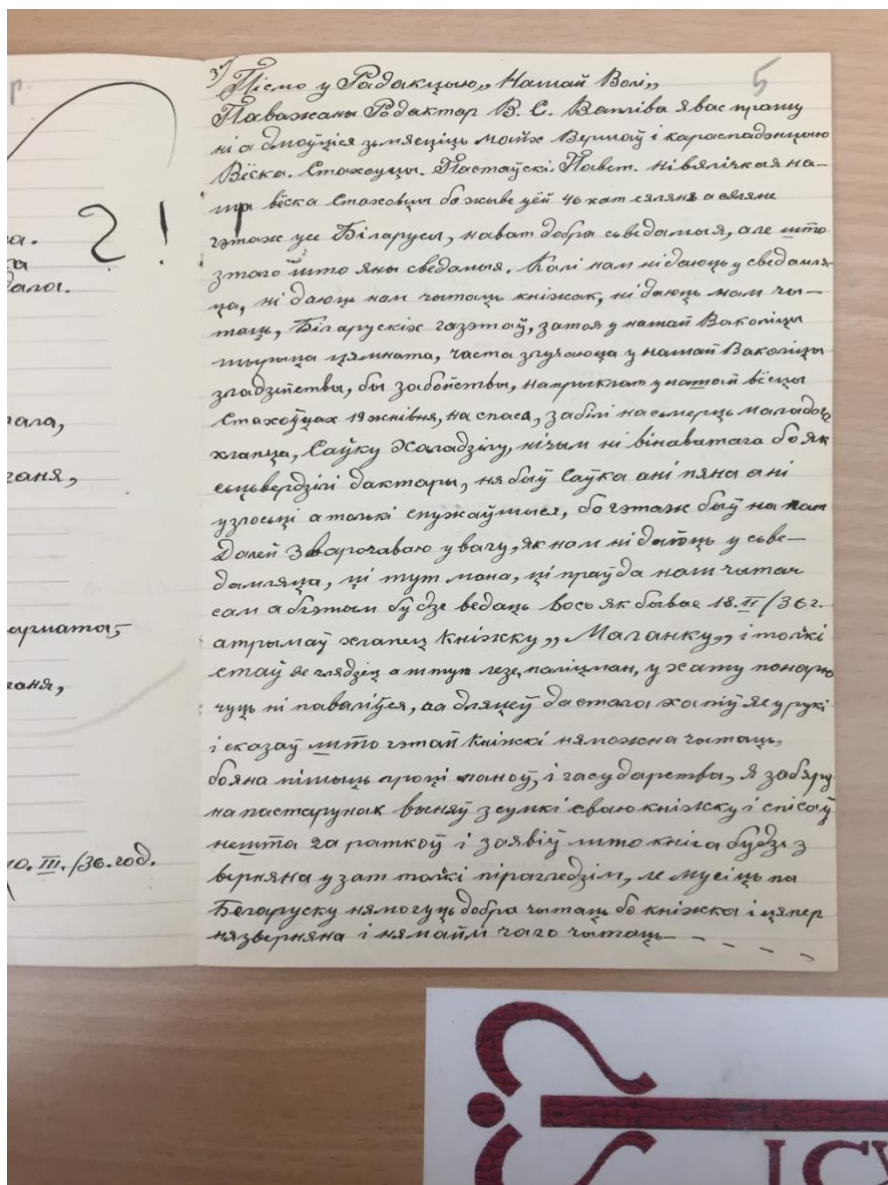 р.
5
3) Пісмо у Радакцыю „Нашай Волі„
Паважаны Рэдактар В. С. Вапліва я вас прашу
ні адмоўціся зьмясціць майіх Вершаў і караспадэнцыю
Вёска. Стахоўцы. Пастаўскі. Павет. нівялічкая на-
ша вёска Стахоўцы бо жыве уёй 46 хат сяляня а сяляне
гэтаж усе Біларусы, нават добра сьведамыя, але што
зтаго што яны сведамыя. Калі нам нідаюць у сведамля-
ца, ні даюць нам чытаць кніжак, ні даюць нам чы-
таць, Біларускіх газэтаў, затоя у нашай Ваколіцы
шырыца цямната, часта злучающа у нашай Ваколіцы
зладзействы, бы забойствы, напрыклат у нашай вёсцы
Стахоўцах 19 жніўня, на спаса, забілі насьмерць маладога
хлапца, Саўку Халадзілу, нічым ні вінаватага бо як
сьцьвердзілі дактары, ня быў Саўка ані пяна ані
узлосьці а толькі спужаўшыся, бо гэтаж быў на
Далей Зварочаваю увагу, як нам ні даюць у сьве-
дамляца, ці тут мана, ці праўда наш чытач
сам абгэтым будзе ведаць вось як бывае 18.II/36г.
атрымаў хлапец Кніжку „Маланку„ і толкі
стаў яе глядзец аш тут лезе, паліцман, у хату
чуць ні паваліўся, даляцеў да стала хапіў яе у рукі
і сказаў што гэтай Кніжкі няможна чытаць,
бо яна пішыць проці паноў, і гасударства, я забяру
на пастарунак выняў з сумкі сваю кніжку і спісаў
нешта га раткоў і заявіў што кніга будзе з
верняна узат толкі пірагледзім, ле мусіць па
Беларуску нямогуць добра чытаць бо кніжка і цяпер
нязверняна і нямаім чаго чытаць - - - -
?!
ца.
дала.
тала,
10. III./36. год.